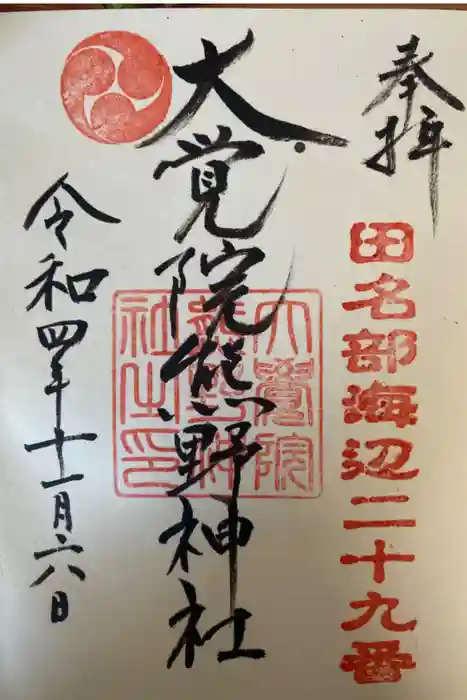 奉拝
田名部海辺二十九番
大覚院熊野神社
大覺院
熊野神
社之印
令和四年十一月六八日